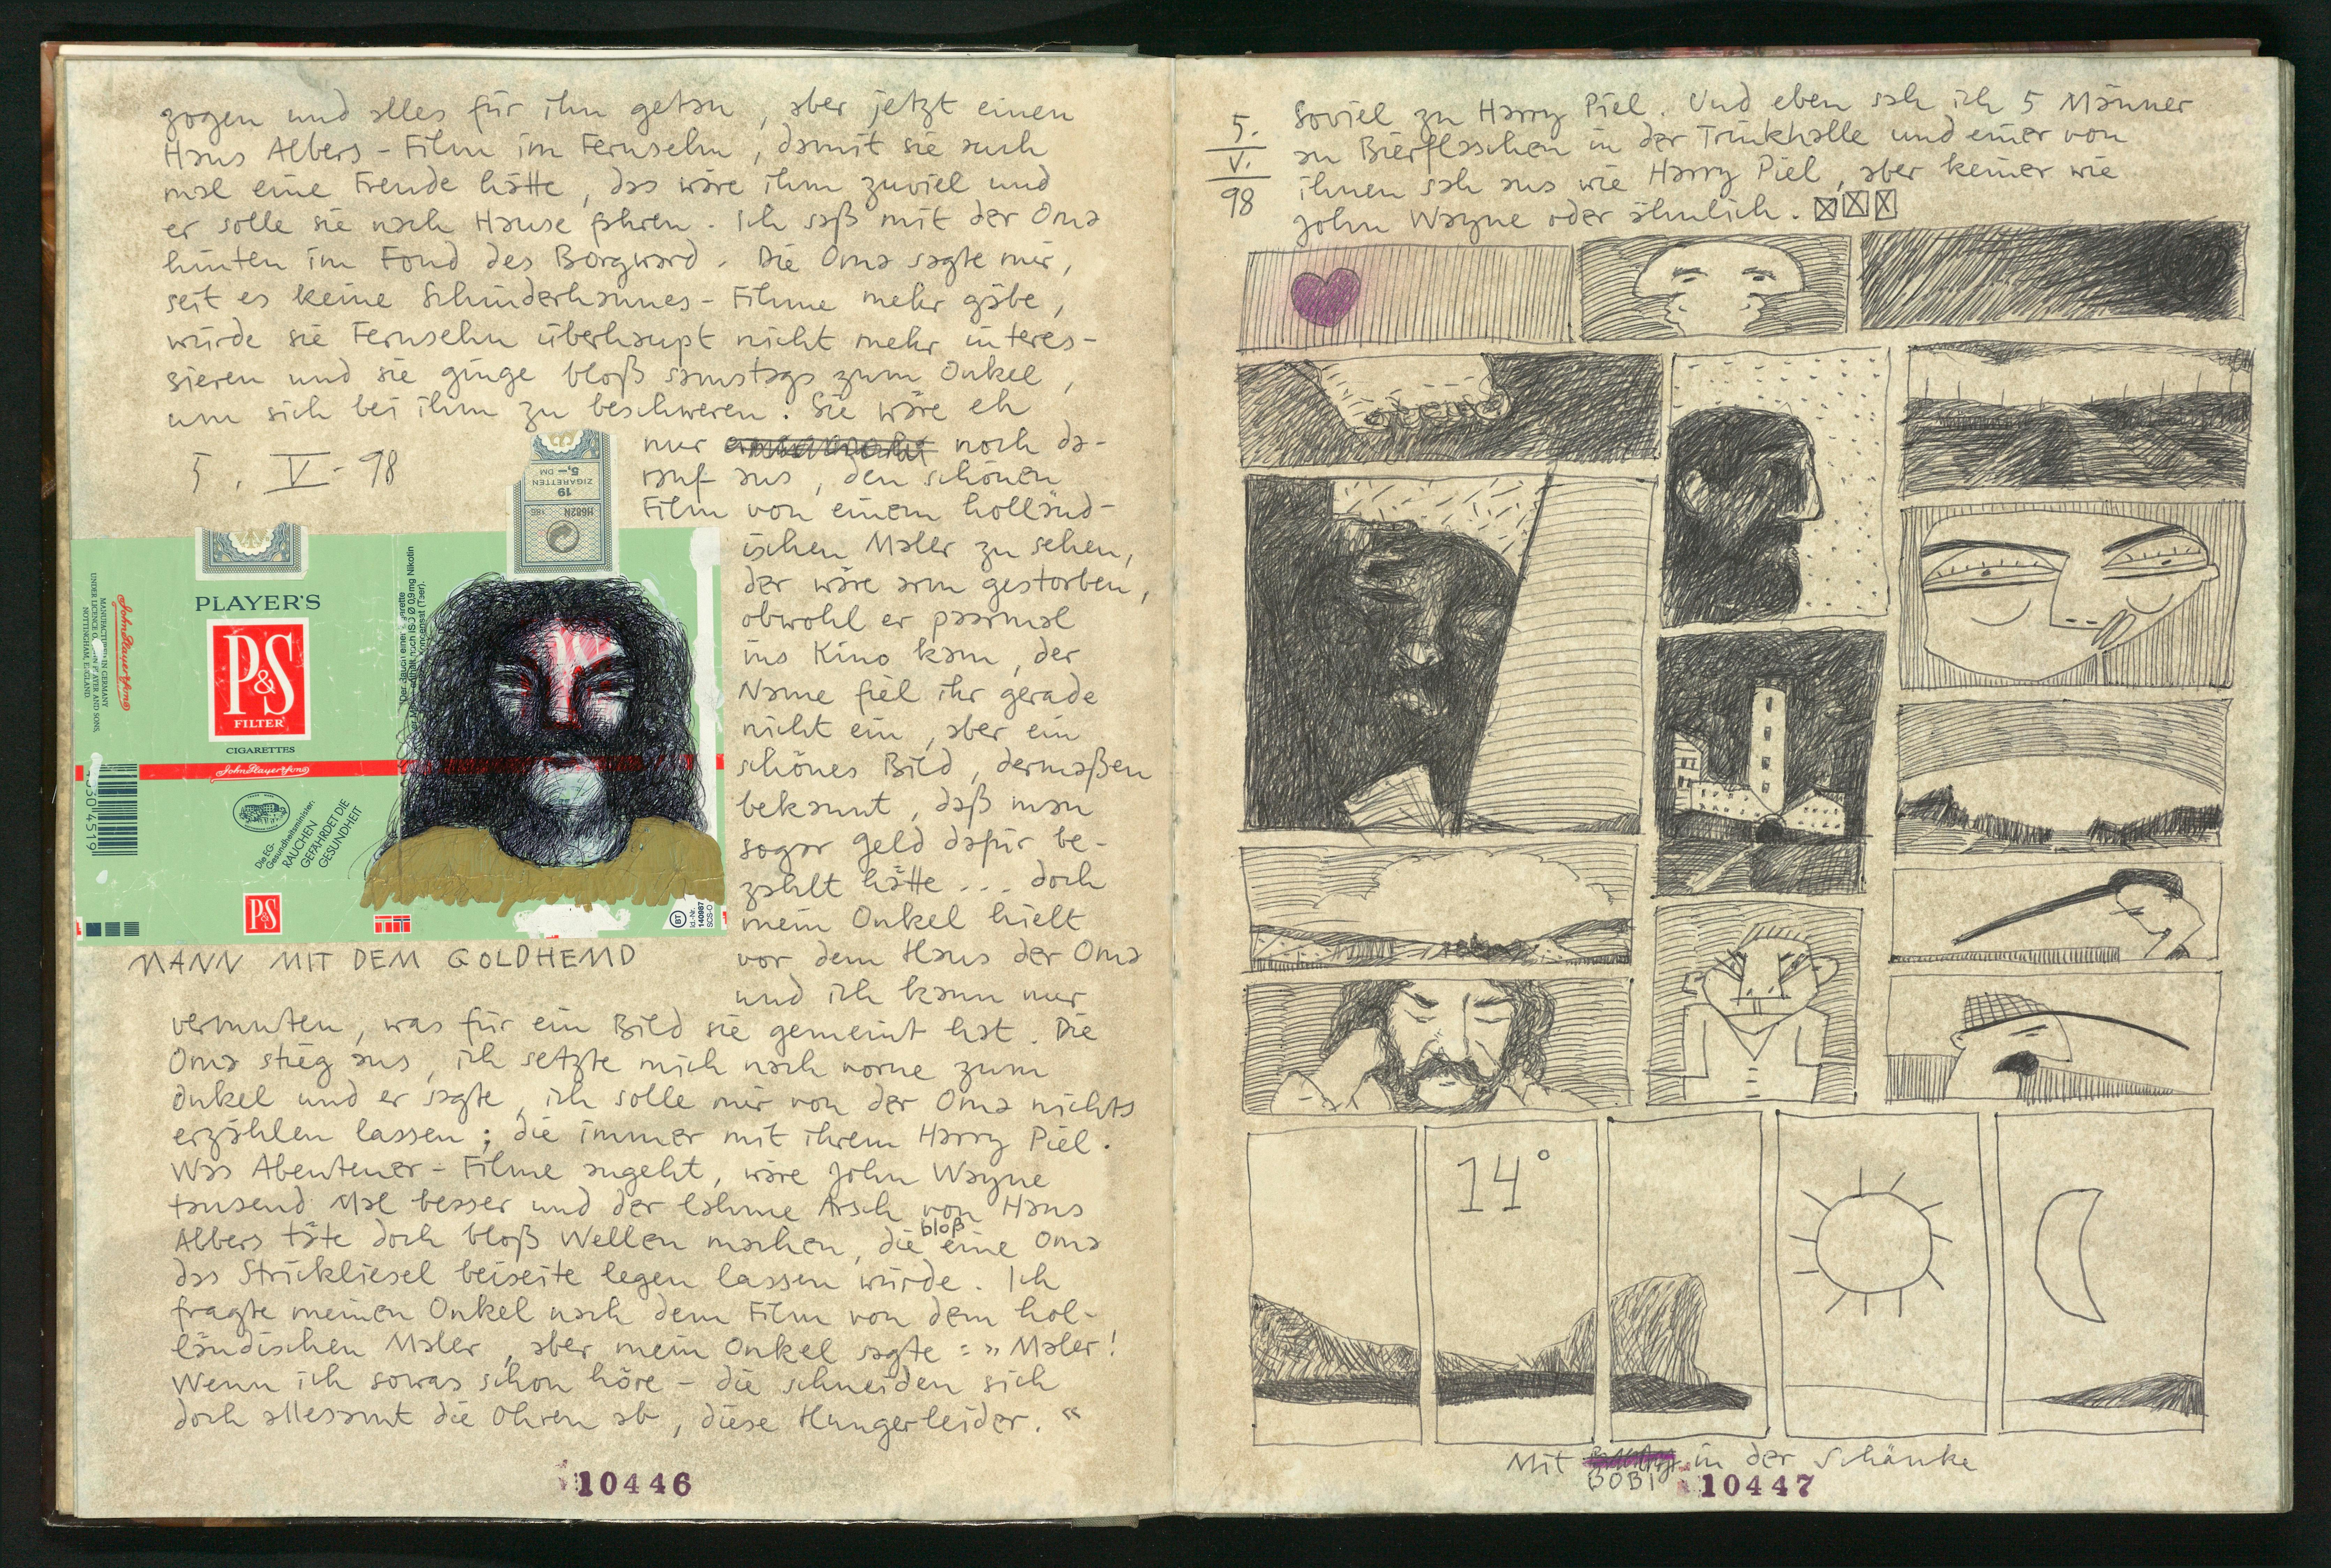 gogen und alles für ihn getan, aber jetzt einen
Hans Albers - Film im Fernsehn, damit sie auch
mal eine Freude hätte, das wäre ihm zuviel und
er solle sie nach Hause fahren. Ich saß mit der Oma
hinten im Fond des Borgward. Die Oma sagte mir,
seit es keine Schinderhannes - Filme mehr gäbe,
würde sie Fernsehn überhaupt nicht mehr interes-
sieren und sie ginge bloß samstags zum Onkel,
um sich bei ihm zu beschweren. Sie wäre eh
nur noch da-
rauf aus, den schönen
Film von einem holländ-
ischen Maler zu sehen,
der wäre arm gestorben,
obwohl er paarmal
ins Kino kam, der
Name fiel ihr gerade
nicht ein, aber ein
schönes Bild, dermaßen
bekannt, daß man
sogar Geld dafür be-
zahlt hätte ... doch
mein Onkel hielt
vor dem Haus der Oma
und ich kann nur
vermuten, was für ein Bild sie gemeint hat. Die
Oma stieg aus, ich setzte mich nach vorne zum
Onkel und er sagte, ich solle mir von der Oma nichts
erzählen lassen; die immer mit ihrem Harry Piel.
Was Abenteuer - Filme angeht, wäre John Wayne
tausend Mal besser und der lahme Arsch von Hans
Albers täte doch bloß Wellen machen, die bloß eine Oma
das Strickliesel beiseite legen lassen würde. Ich
fragte meinen Onkel nach dem Film von dem hol-
ländischen Maler, aber mein Onkel sagte: »Maler!
Wenn ich sowas schon höre - die schneiden sich
doch allesamt die Ohren ab, diese Hungerleider.«
5. V. 98
5,- DM
ZIGARETTEN
19
H682N
18E
PLAYER'S
P&S
FILTER
CIGARETTES
John Player & Sons
John Player & Sons
MANUFACTURED IN GERMANY
NOTTINGHAM, ENGLAND
Die EG-
Gesundheitsminister:
RAUCHEN
GEFÄHRDET DIE
GESUNDHEIT
P&S
Id.-Nr.
140987
SCS-O
MANN MIT DEM GOLDHEMD
10446
5.
V.
98
Soviel zu Harry Piel. Und eben sah ich 5 Männer
an Bierflaschen in der Trinkhalle und einer von
ihnen sah aus wie Harry Piel, aber keiner wie
John Wayne oder ähnlich.
14°
Mit BOBI in der Schänke
10447